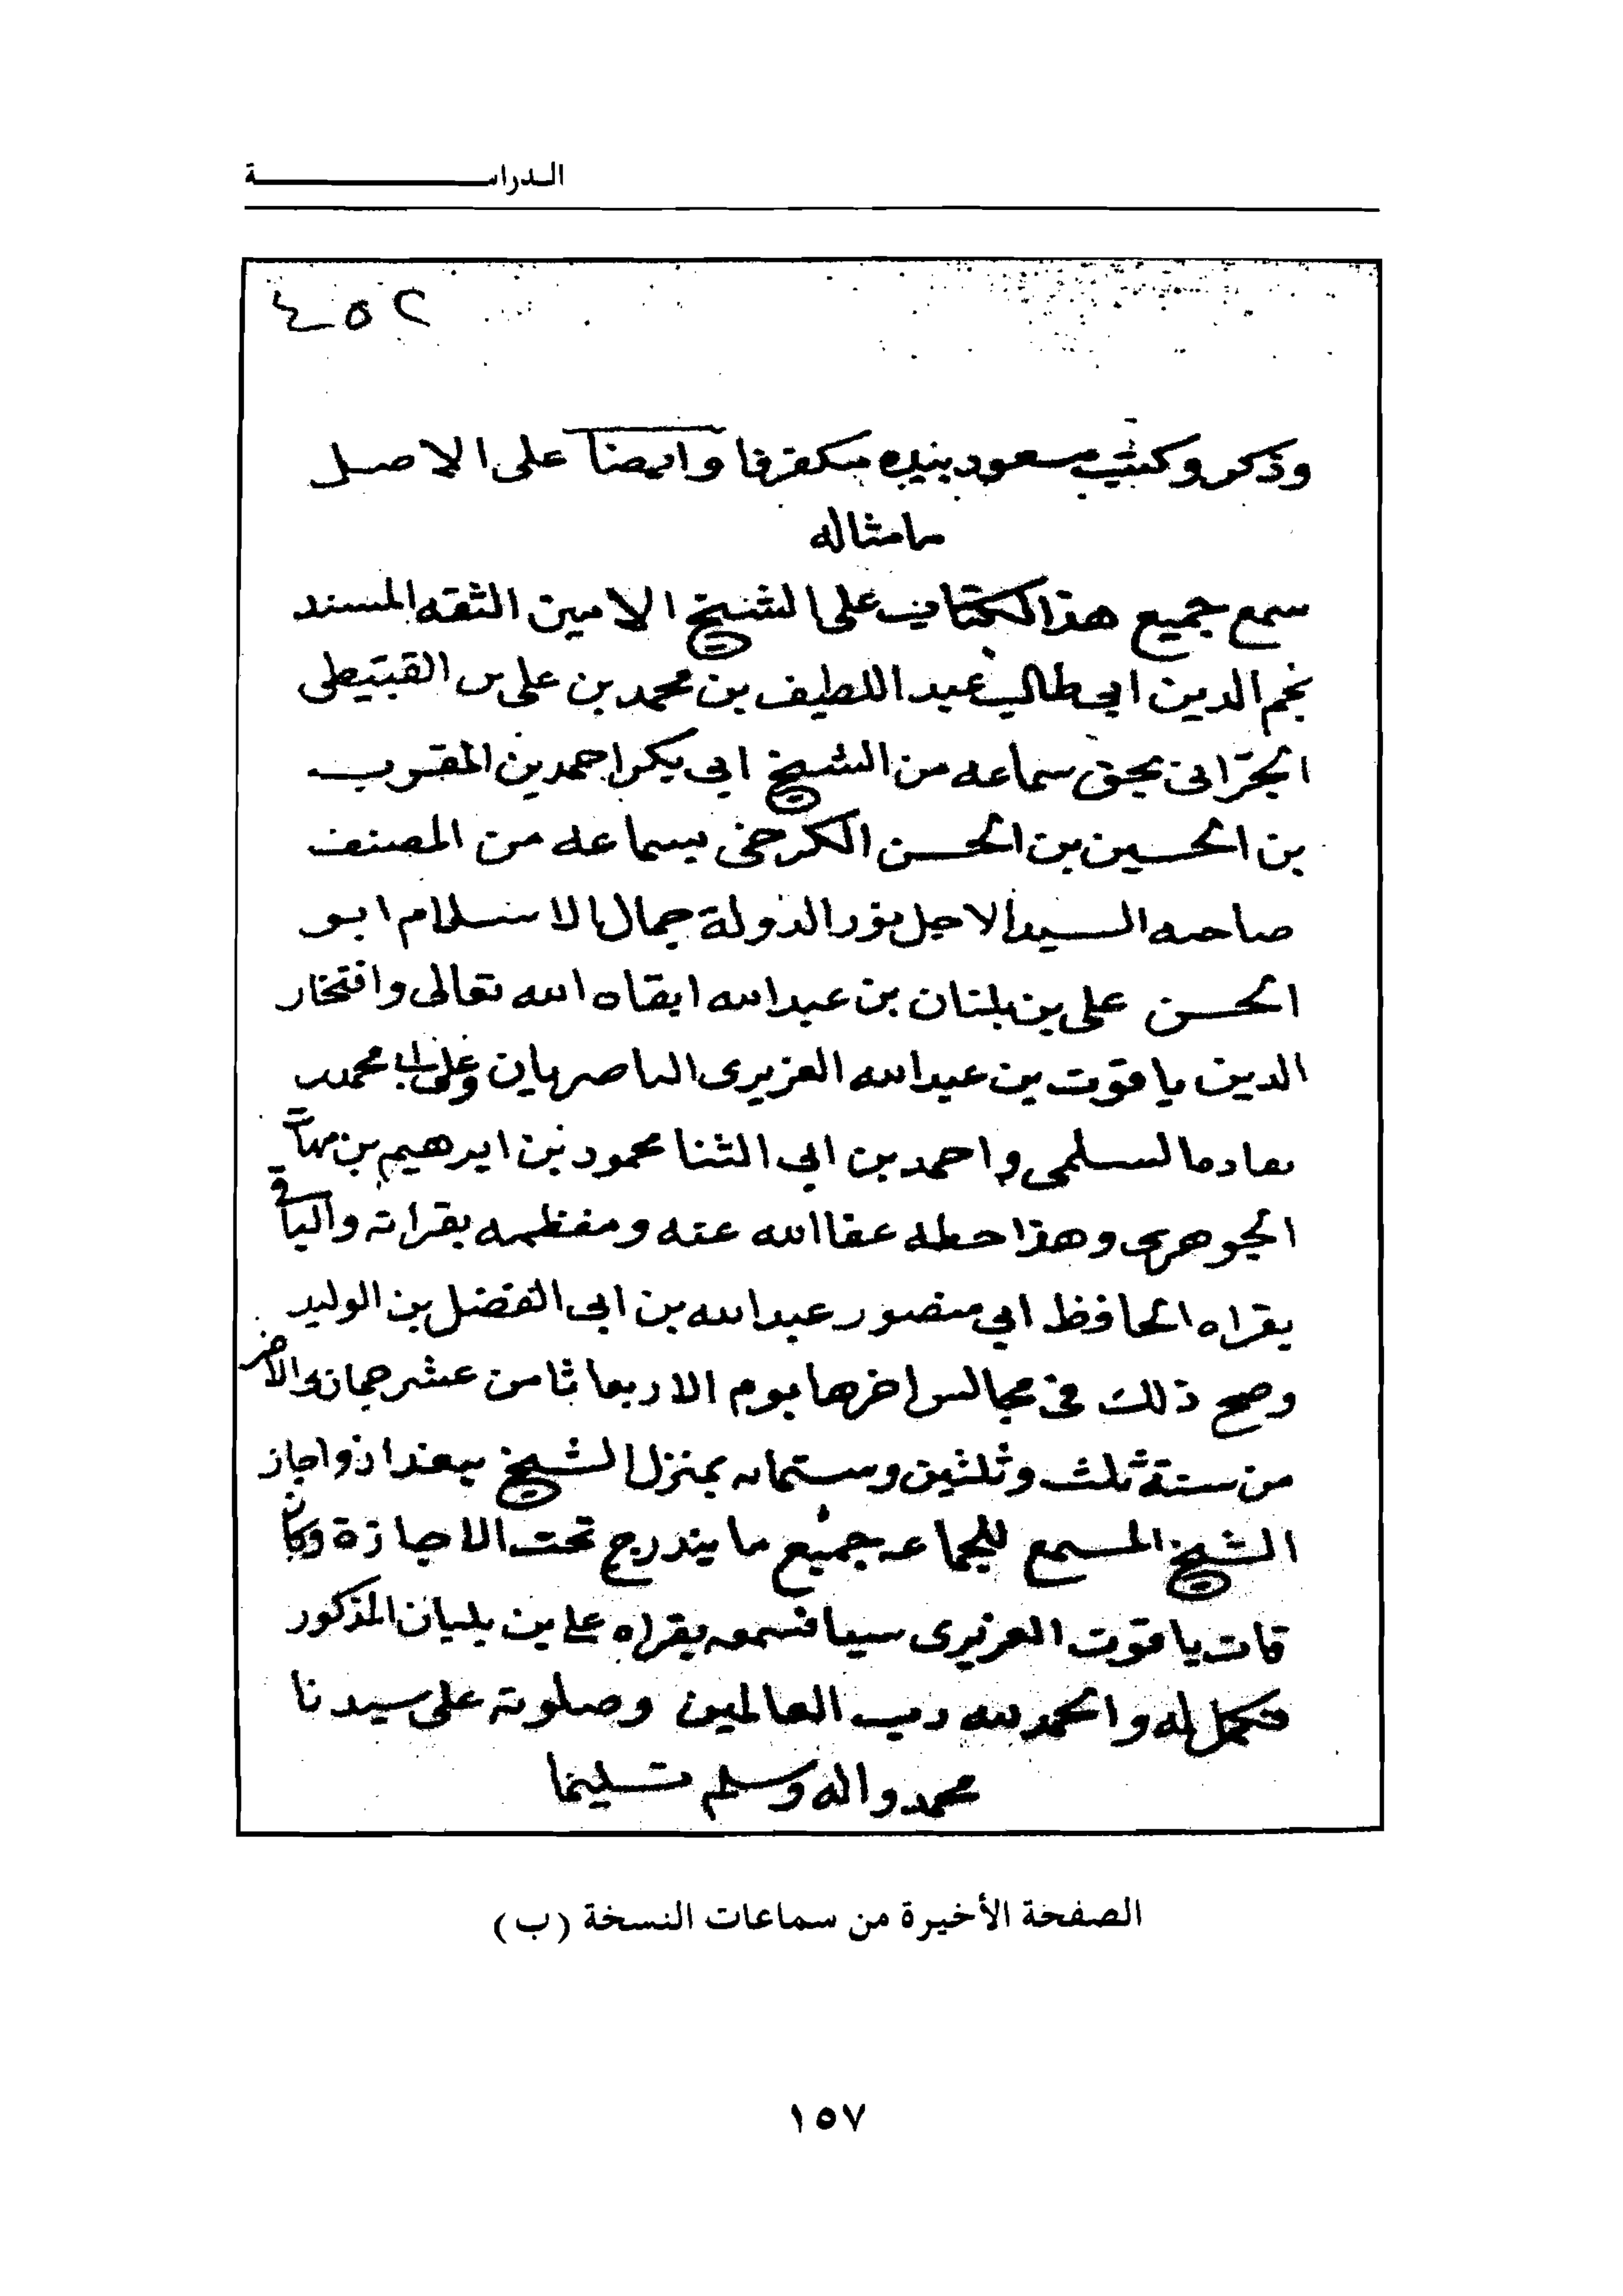 الدراسة
٤٥٢
وذكر وكتب مسعود بيده وايضا على الاصل
ما مثاله
سمع جميع هذا الكتاب على الشيخ الامين الثقه المسند
نجم الدين ابي طالب عبد اللطيف بن محمد بن على بن القبيطى
الحرانى بحق سماعه من الشيخ ابي بكر احمد بن المقرب
بن الحسين بن الحسن الكرخى بسماعه من المصنف
صاحبه السيد الاجل نور الدولة جمال الاسلام ابو
الحسن على بن بلبان بن عبد الله ابقاه الله تعالى وافتخار
الدين ياقوت بن عبد الله العزيزى الناصريان وعلى بن محمد بن
السلمى واحمد بن ابي الثنا محمود بن ابرهيم بن
الجوهرى وهذا خطه عفا الله عنه ومعظمه بقراته والباقى
بقراه الحافظ ابي منصور عبد الله بن ابي الفضل بن الوليد
وصح ذلك فى مجالس اخرها يوم الاربعا ثامن عشر جمادى الاخر
من سنة ثلث وثلثين وستمائه بمنزل الشيخ ببغداد واجاز
الشيخ المسمع للجماعه جميع ما يندرج تحت الاجازة وكان
فات ياقوت العزيزى شيا فسمعه بقراه على بن بلبان المذكور
فكمل له والحمد لله رب العالمين وصلوته على سيدنا
محمد واله وسلم تسليما
الصفحة الأخيرة من سماعات النسخة (ب)
١٥٧